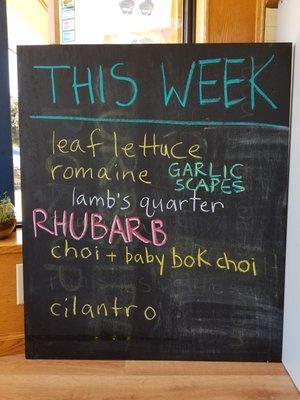 THIS WEEK
leaf lettuce
romaine GARLIC SCAPES
lamb's quarter
RHUBARB
choi + baby bok choi
cilantro